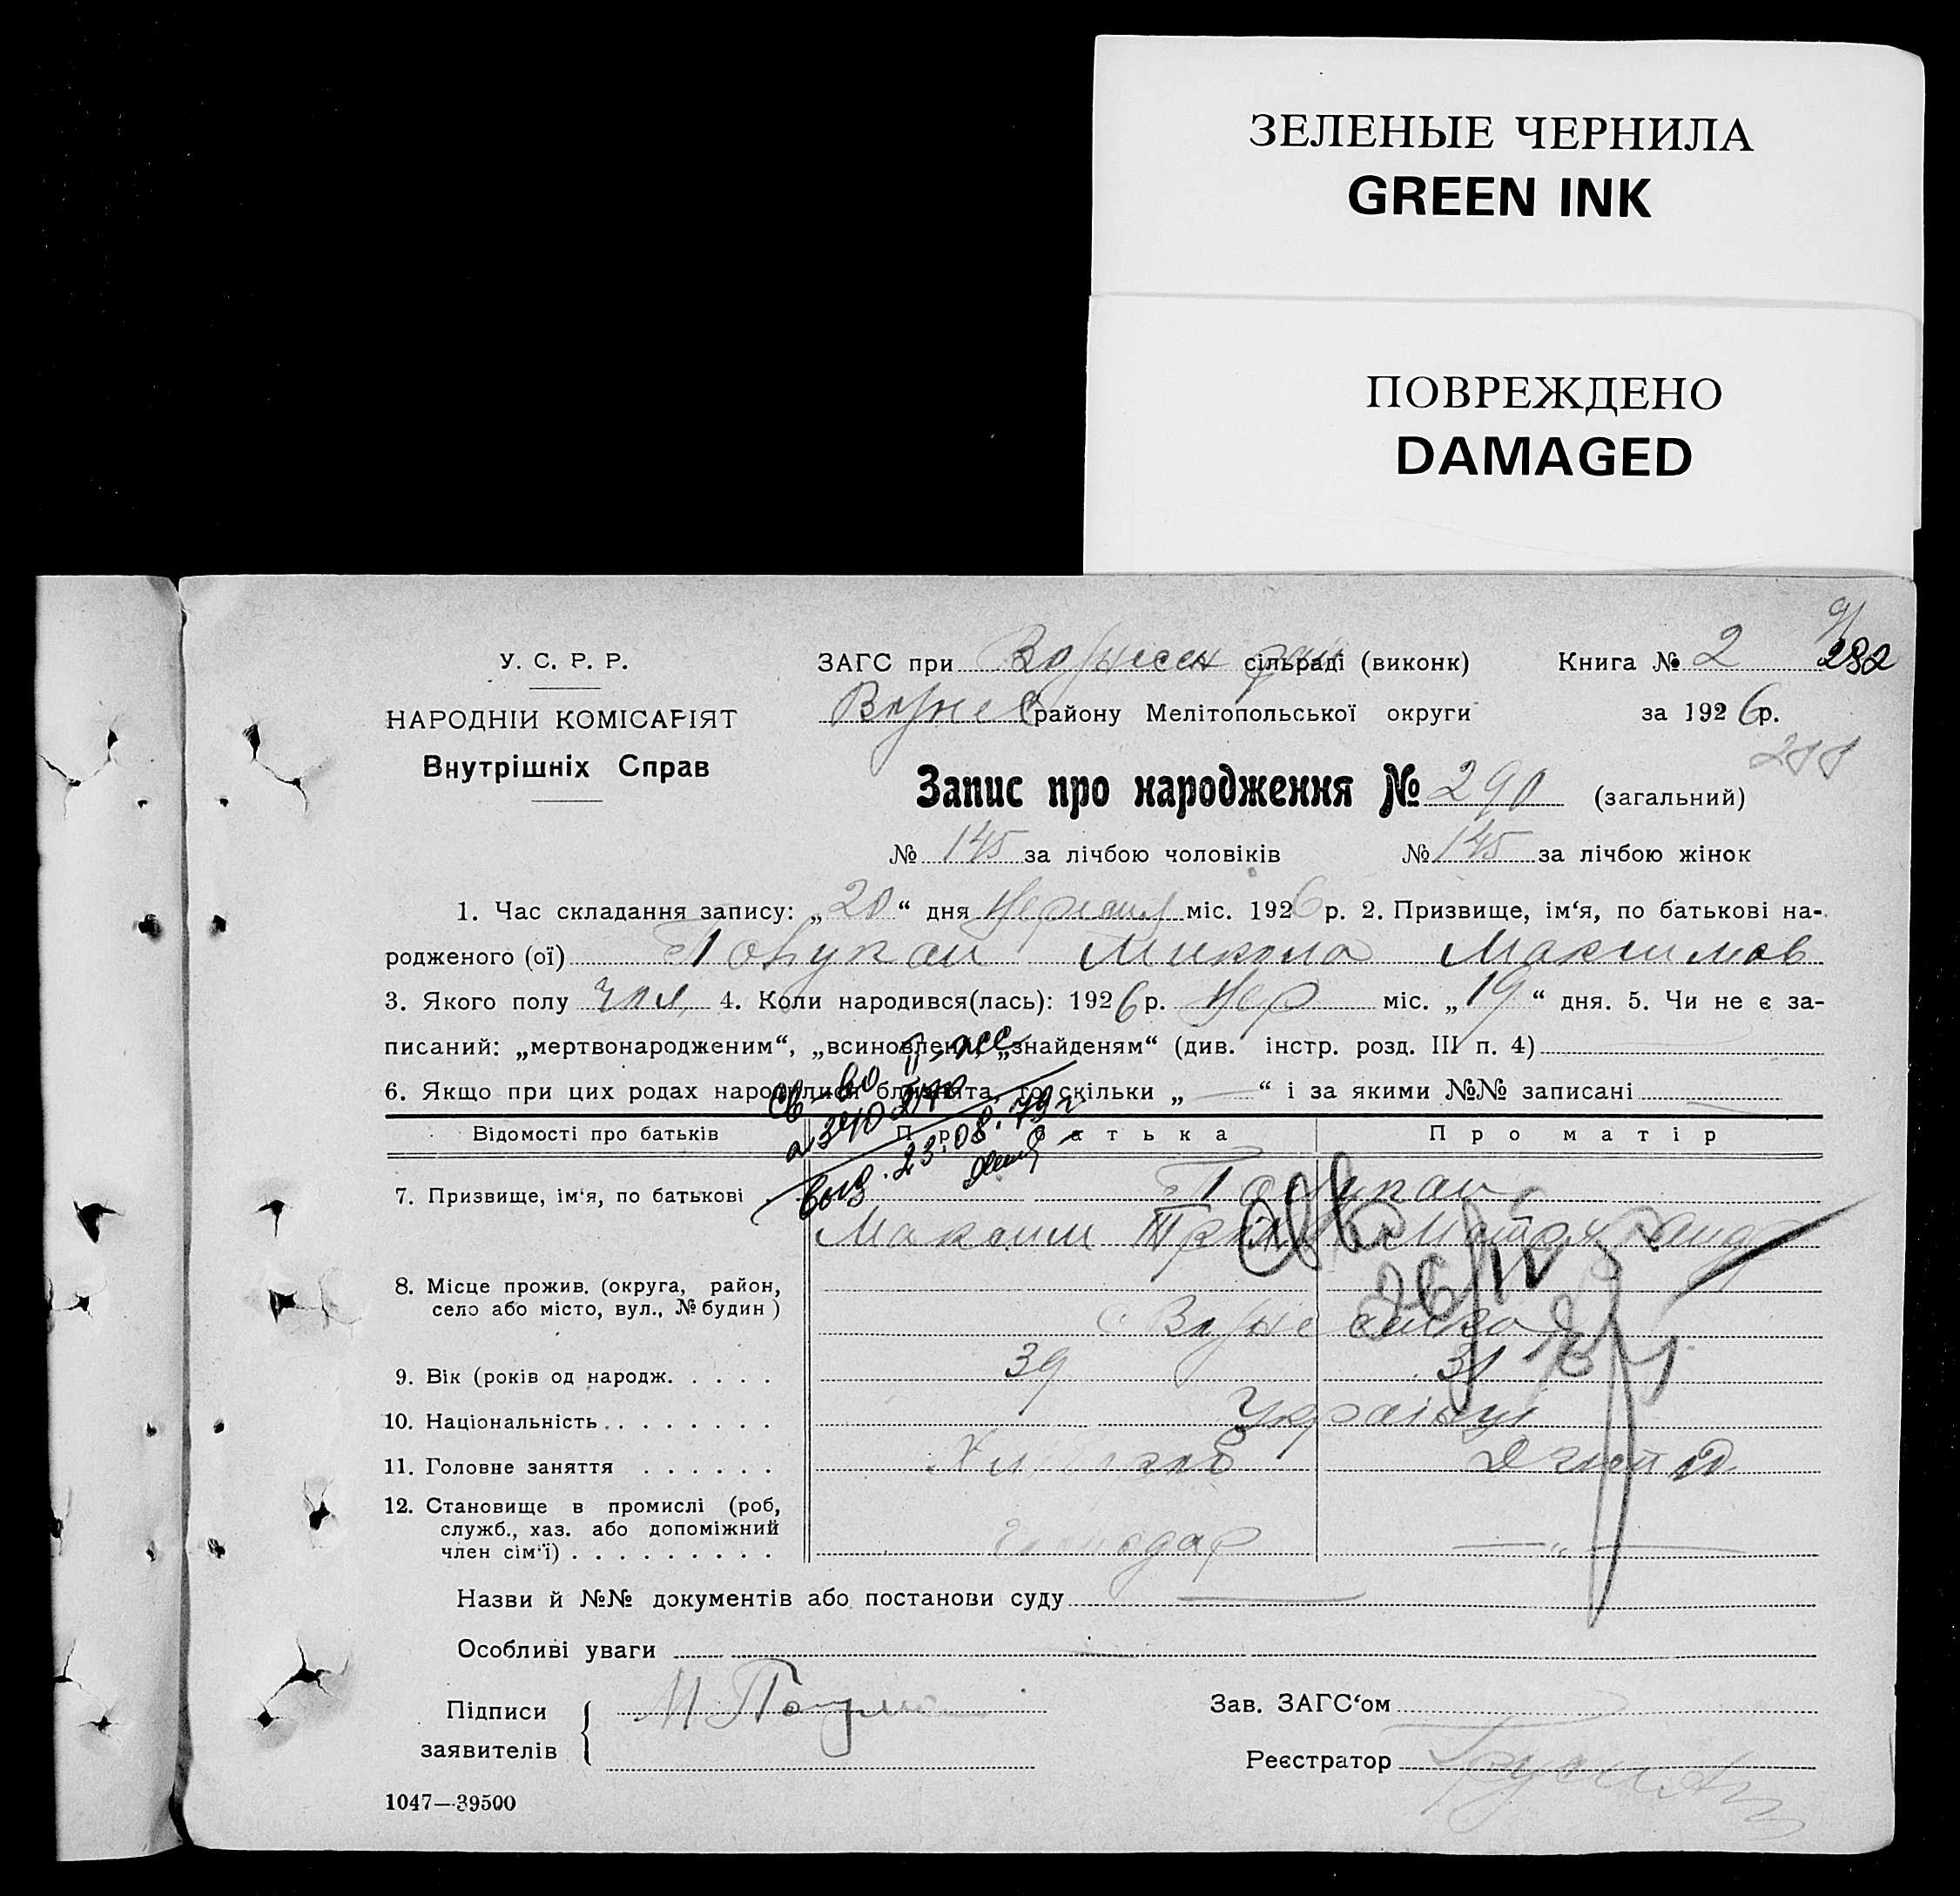 ЗЕЛЕНЫЕ ЧЕРНИЛА
GREEN INK
ПОВРЕЖДЕНО
DAMAGED
У. С. Р. Р.
НАРОДНІЙ КОМІСАРІЯТ
Внутрішніх Справ
ЗАГС при Вознесен сільраді (виконк) Книга № 2 282
Вознес району Мелітопольської округи за 1926 р.
288
Запис про народження № 290 (загальний)
№ 145 за лічбою чоловіків № 145 за лічбою жінок
1. Час складання запису: „20“ дня Червня міс. 1926 р. 2. Призвище, ім‘я, по батькові на-
родженого (ої) Микола Максимов
3. Якого полу чол, 4. Коли народився(лась): 1926 р. Чер міс. „19“ дня. 5. Чи не є за-
писаний: „мертвонародженим“, „всиновленим“, „знайденям“ (див. інстр. розд. III п. 4)
6. Якщо при цих родах народилися близнята, то скільки „—“ і за якими №№ записані
св-во
выд. 23.08.79г
Відомості про батьків Про батька Про матір
7. Призвище, ім‘я, по батькові
Максим
8. Місце прожив. (округа, район,
село або місто, вул., № будин)
с Вознесенка
26/IV
9. Вік (років од народж. 39 31
10. Національність Українці
11. Головне заняття
12. Становище в промислі (роб,
служб., хаз. або допоміжний
член сім‘ї) господар — „ —
Назви й №№ документів або постанови суду —
Особливі уваги —
Підписи
заявителів
Зав. ЗАГС‘ом
Реєстратор
1047—39500